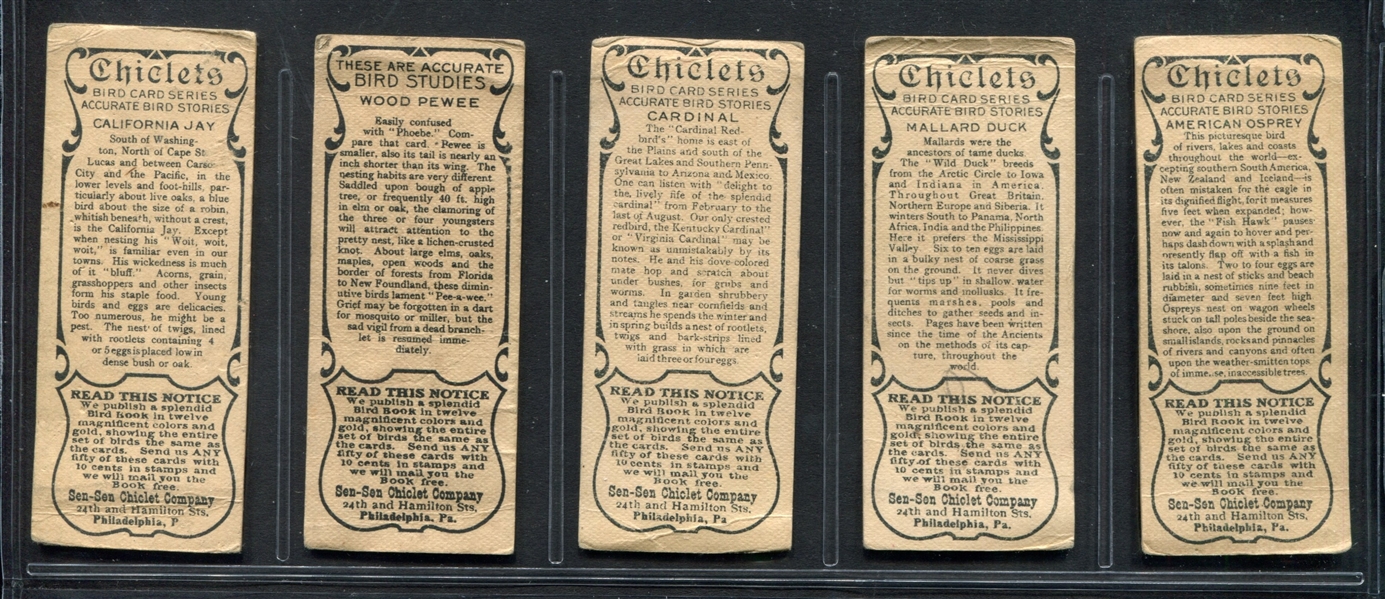 Chiclets
BIRD CARD SERIES
ACCURATE BIRD STORIES
CALIFORNIA JAY
South of Washing-
ton, North of Cape St.
Lucas and between Carson
City and the Pacific, in the
lower levels and foot-hills, par-
ticularly about live oaks, a blue
bird about the size of a robin,
whitish beneath, without a crest,
is the California Jay. Except
when nesting his "Woit, woit,
woit," is familiar even in our
towns. His wickedness is much
of it "bluff." Acorns, grain,
grasshoppers and other insects
form his staple food. Young
birds and eggs are delicacies.
Too numerous, he might be a
pest. The nest of twigs, lined
with rootlets containing 4
or 5 eggs is placed low in
dense bush or oak.
READ THIS NOTICE
We publish a splendid
Bird Book in twelve
magnificent colors and
gold, showing the entire
set of birds the same as
the cards. Send us ANY
fifty of these cards with
10 cents in stamps and
we will mail you the
Book free.
Sen-Sen Chiclet Company
24th and Hamilton Sts.
Philadelphia, P
THESE ARE ACCURATE
BIRD STUDIES
WOOD PEWEE
Easily confused
with "Phoebe." Com-
pare that card. Pewee is
smaller, also its tail is nearly an
inch shorter than its wing. The
nesting habits are very different.
Saddled upon bough of apple
tree, or frequently 40 ft. high
in elm or oak, the clamoring of
the three or four youngsters
will attract attention to the
pretty nest, like a lichen-crusted
knot. About large elms, oaks,
maples, open woods and the
border of forests from Florida
to New Foundland, these dimin-
utive birds lament "Pee-a-wee."
Grief may be forgotten in a dart
for mosquito or miller, but the
sad vigil from a dead branch-
let is resumed imme-
diately.
READ THIS NOTICE
We publish a splendid
Bird Book in twelve
magnificent colors and
gold, showing the entire
set of birds the same as
the cards. Send us ANY
fifty of these cards with
10 cents in stamps and
we will mail you the
Book free.
Sen-Sen Chiclet Company
24th and Hamilton Sts.
Philadelphia, Pa.
Chiclets
BIRD CARD SERIES
ACCURATE BIRD STORIES
CARDINAL
The "Cardinal Red-
bird's" home is east of
the Plains and south of the
Great Lakes and Southern Penn-
sylvania to Arizona and Mexico.
One can listen with "delight to
the lively fife of the splendid
cardinal" from February to the
last of August. Our only crested
redbird, the Kentucky Cardinal"
or "Virginia Cardinal" may be
known as unmistakably by its
notes. He and his dove-colored
mate hop and scratch about
under bushes, for grubs and
worms. In garden shrubbery
and tangles near cornfields and
streams he spends the winter and
in spring builds a nest of rootlets,
twigs and bark-strips lined
with grass in which are
laid three or four eggs.
READ THIS NOTICE
We publish a splendid
Bird Book in twelve
magnificent colors and
gold, showing the entire
set of birds the same as
the cards. Send us ANY
fifty of these cards with
10 cents in stamps and
we will mail you the
Book free.
Sen-Sen Chiclet Company
24th and Hamilton Sts.
Philadelphia, Pa
Chiclets
BIRD CARD SERIES
ACCURATE BIRD STORIES
MALLARD DUCK
Mallards were the
ancestors of tame ducks.
The "Wild Duck" breeds
from the Arctic Circle to Iowa
and Indiana in America.
Throughout Great Britain,
Northern Europe and Siberia. It
winters South to Panama, North
Africa, India and the Philippines.
Here it prefers the Mississippi
Valley. Six to ten eggs are laid
in a bulky nest of coarse grass
on the ground. It never dives
but "tips up" in shallow water
for worms and mollusks. It fre-
quents marshes, pools and
ditches to gather seeds and in-
sects. Pages have been written
since the time of the Ancients
on the methods of its cap-
ture, throughout the
world.
READ THIS NOTICE
We publish a splendid
Bird Book in twelve
magnificent colors and
gold, showing the entire
set of birds the same as
the cards. Send us ANY
fifty of these cards with
10 cents in stamps and
we will mail you the
Book free.
Sen-Sen Chiclet Company
24th and Hamilton Sts.
Philadelphia, Pa.
Chiclets
BIRD CARD SERIES
ACCURATE BIRD STORIES
AMERICAN OSPREY
This picturesque bird
of rivers, lakes and coasts
throughout the world—ex-
cepting southern South America,
New Zealand and Iceland—is
often mistaken for the eagle in
its dignified flight, for it measures
five feet when expanded; how-
ever, the "Fish Hawk" pauses
now and again to hover and per-
haps dash down with a splash and
presently flap off with a fish in
its talons. Two to four eggs are
laid in a nest of sticks and beach
rubbish, sometimes nine feet in
diameter and seven feet high.
Ospreys nest on wagon wheels
stuck on tall poles beside the sea-
shore, also upon the ground on
small islands, rocks and pinnacles
of rivers and canyons and often
upon the weather-smitten tops
of immense, inaccessible trees.
READ THIS NOTICE
We publish a splendid
Bird Book in twelve
magnificent colors and
gold, showing the entire
set of birds the same as
the cards. Send us ANY
fifty of these cards with
10 cents in stamps and
we will mail you the
Book free.
Sen-Sen Chiclet Company
24th and Hamilton Sts.
Philadelphia, Pa.